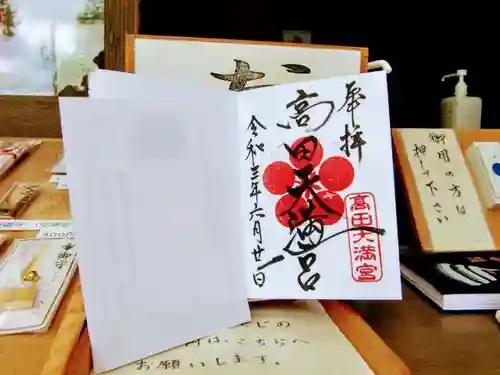 奉拝
高田天満宮
令和三年六月廿一日
高田
天満宮
御用の方は
押して下さい
じの
はこちらへ
お願いします。